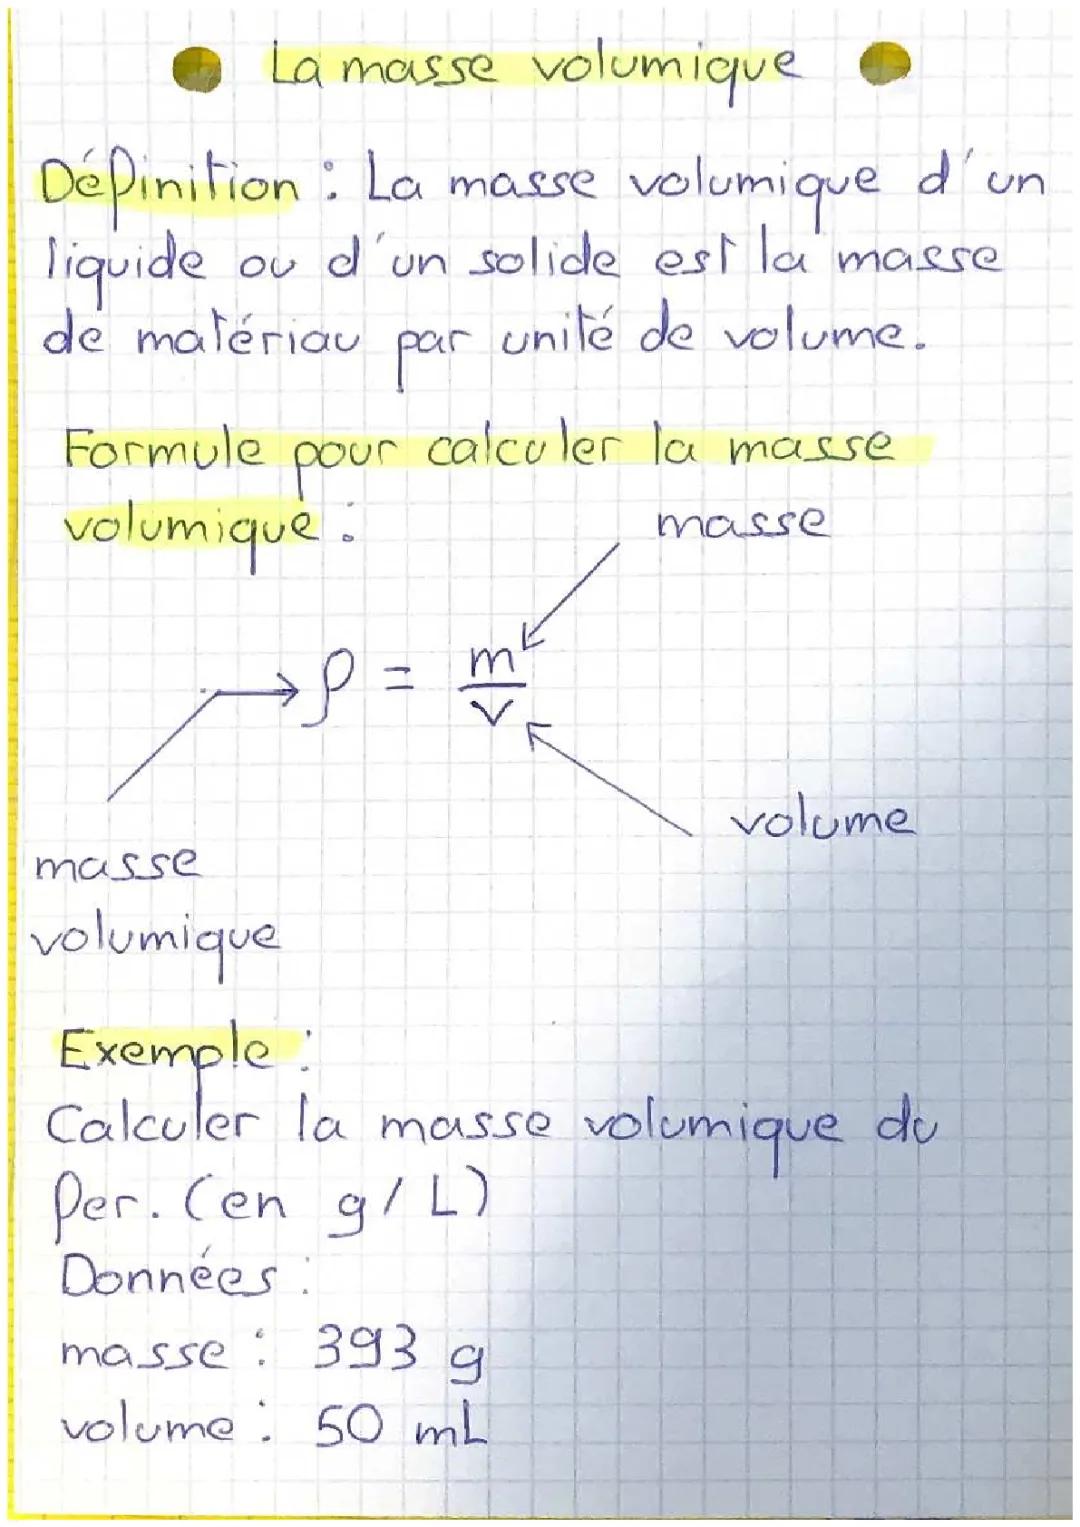 La masse volumique
Définition : La masse volumique d'un
liquide ou d'un solide est la masse
de matériau par unité de volume.
Formule pour calculer la masse
volumique :
masse
ρ = m/v
volume
masse
volumique
Exemple :
Calculer la masse volumique du
fer. (en g/L)
Données :
masse : 393 g
volume : 50 mL